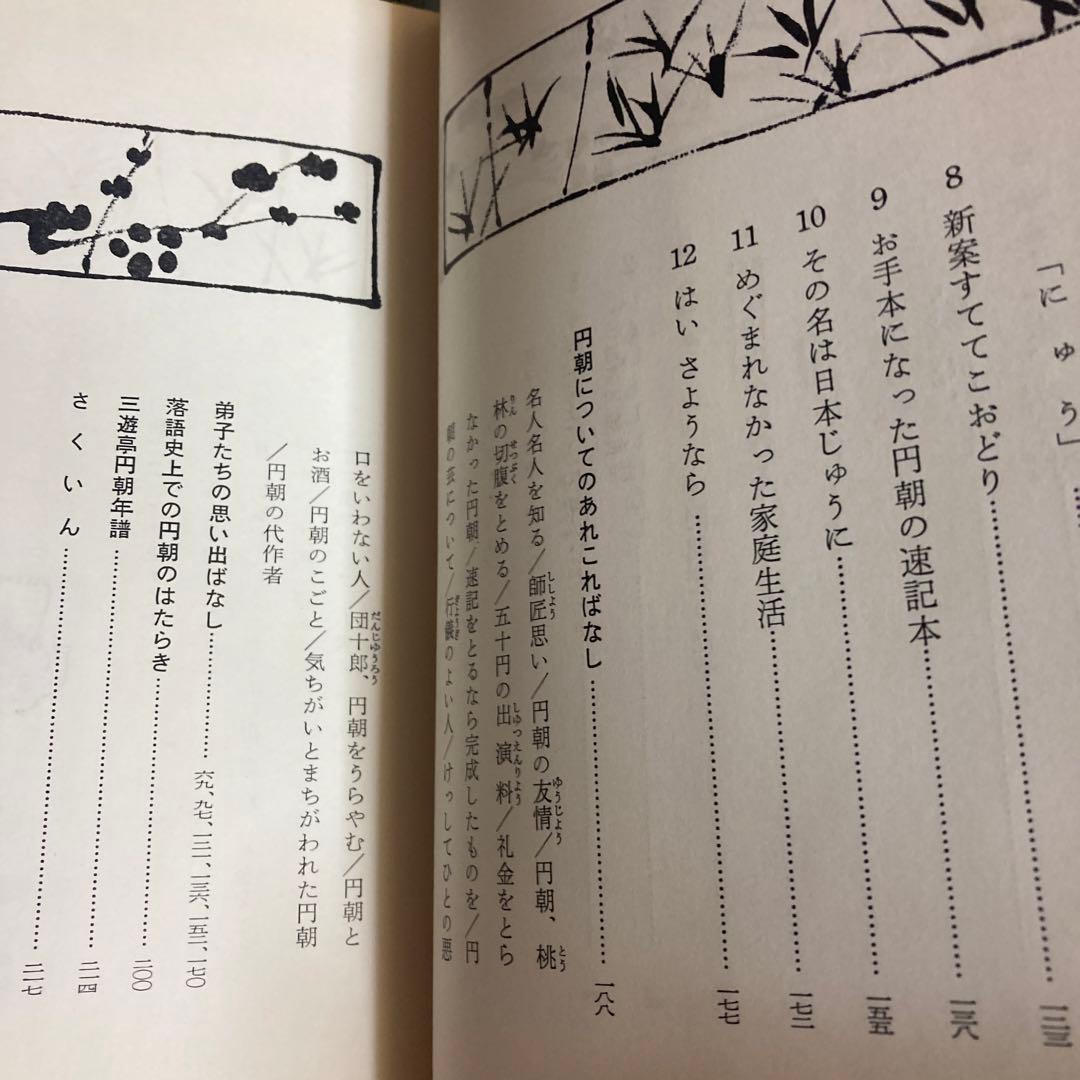 「にゅう」…
8 新案すててこおどり…………一二三
9 お手本になった円朝の速記本…………一三八
10 その名は日本じゅうに…………一五五
11 めぐまれなかった家庭生活…………一七二
12 はい さようなら…………一七七
円朝についてのあれこればなし…………一八八
名人名人を知る/師匠思い/円朝の友情/円朝、桃
林の切腹をとめる/五十円の出演料/礼金をとら
なかった円朝/速記をとるなら完成したものを/円
朝の芸について/行儀のよい人/けっしてひとの悪
口をいわない人/団十郎、円朝をうらやむ/円朝と
お酒/円朝のこごと/気ちがいとまちがわれた円朝
/円朝の代作者
弟子たちの思い出ばなし…………六九、九七、一三一、一三六、一五二、一七〇
落語史上での円朝のはたらき…………二〇〇
三遊亭円朝年譜…………二一四
さくいん…………二一七